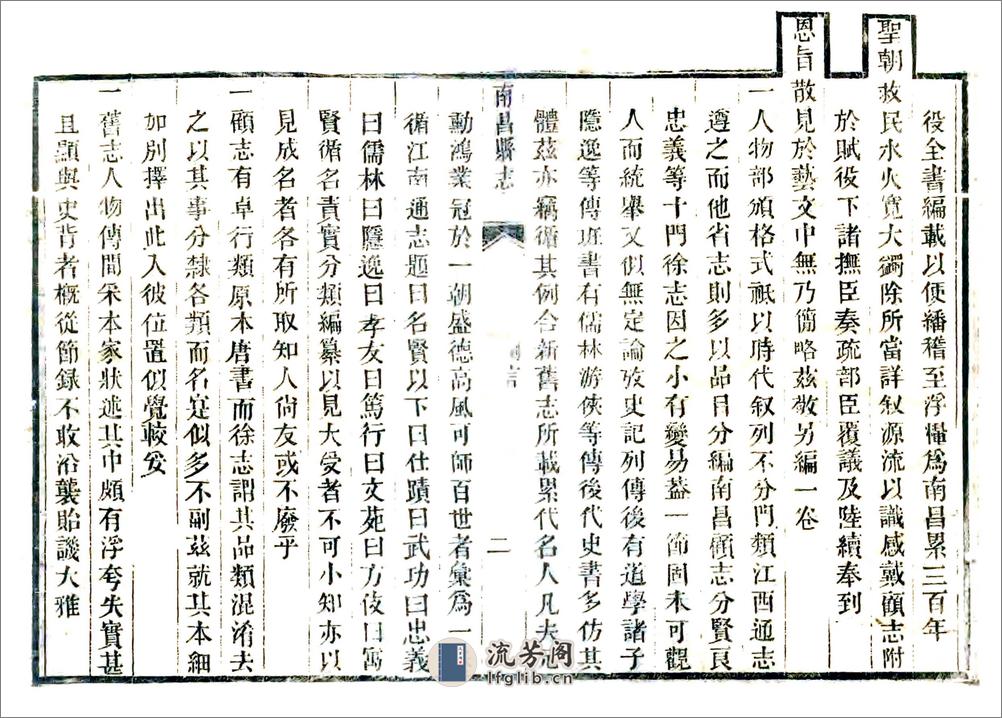 役全書編載以便繙稽至浮糧爲南昌累三百年
聖朝救民水火寬大蠲除所當詳叙源流以識感戴顧志附
於賦役下諸撫臣奏疏部臣覆議及陸續奉到
恩旨散見於藝文中無乃簡略茲敬另編一卷
一人物部頒格式祇以時代叙列不分門類江西通志
遵之而他省志則多以品目分編南昌顧志分賢良
忠義等十門徐志因之小有變易蓋一節固未可觀
人而統舉又似無定論攷史記列傳後有道學諸子
隱逸等傳班書有儒林游俠等傳後代史書多仿其
體茲亦竊循其例合新舊志所載累代名人凡夫
南昌縣志
二
勳鴻業冠於一朝盛德高風可師百世者彙爲一
循江南通志題曰名賢以下曰仕蹟曰武功曰忠義
曰儒林曰隱逸曰孝友曰篤行曰文苑曰方伎曰寓
賢循名責實分類編纂以見大受者不可小知亦以
見成名者各有所取知人尙友或不廢乎
一顧志有卓行類原本唐書而徐志謂其品類混淆夫
之以其事分隸各類而名寔似多不副茲就其本細
加別擇出此入彼位置似覺較妥
一舊志人物傳間采本家狀述其中頗有浮夸失實甚
且顯與史背者概從節録不敢沿襲貽譏大雅
流芳阁
lfglib.cn